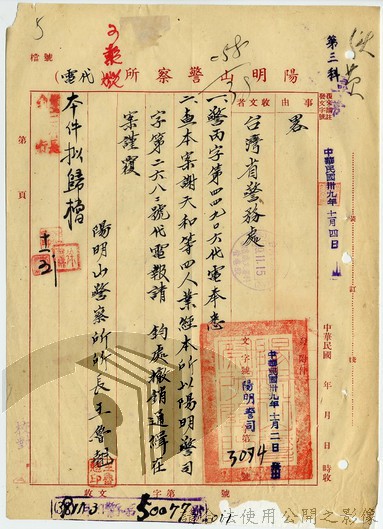 陽明山警察所(代電)
號檔
第三科
事由
收文者
畧
台灣省警務處
中華民國卅九年十一月四日
一、警丙字第四四九〇六代電奉悉
二、查本案謝天和等四人業經本所以陽明警司
字第二六八三號代電報請 鈞處撤銷通緝在
案謹覆
陽明山警察所所長王魯翹
本件拟歸檔
第 頁
中華民國 年 月 日 時收
中華民國卅九年十一月二日
文字第 號
陽明警司
3094
50077
合法使用公開之影像